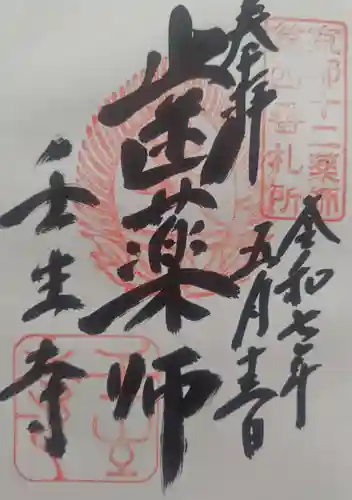 京都十二薬師
第四番札所
奉拝
令和七年
五月
歯薬師
壬生寺